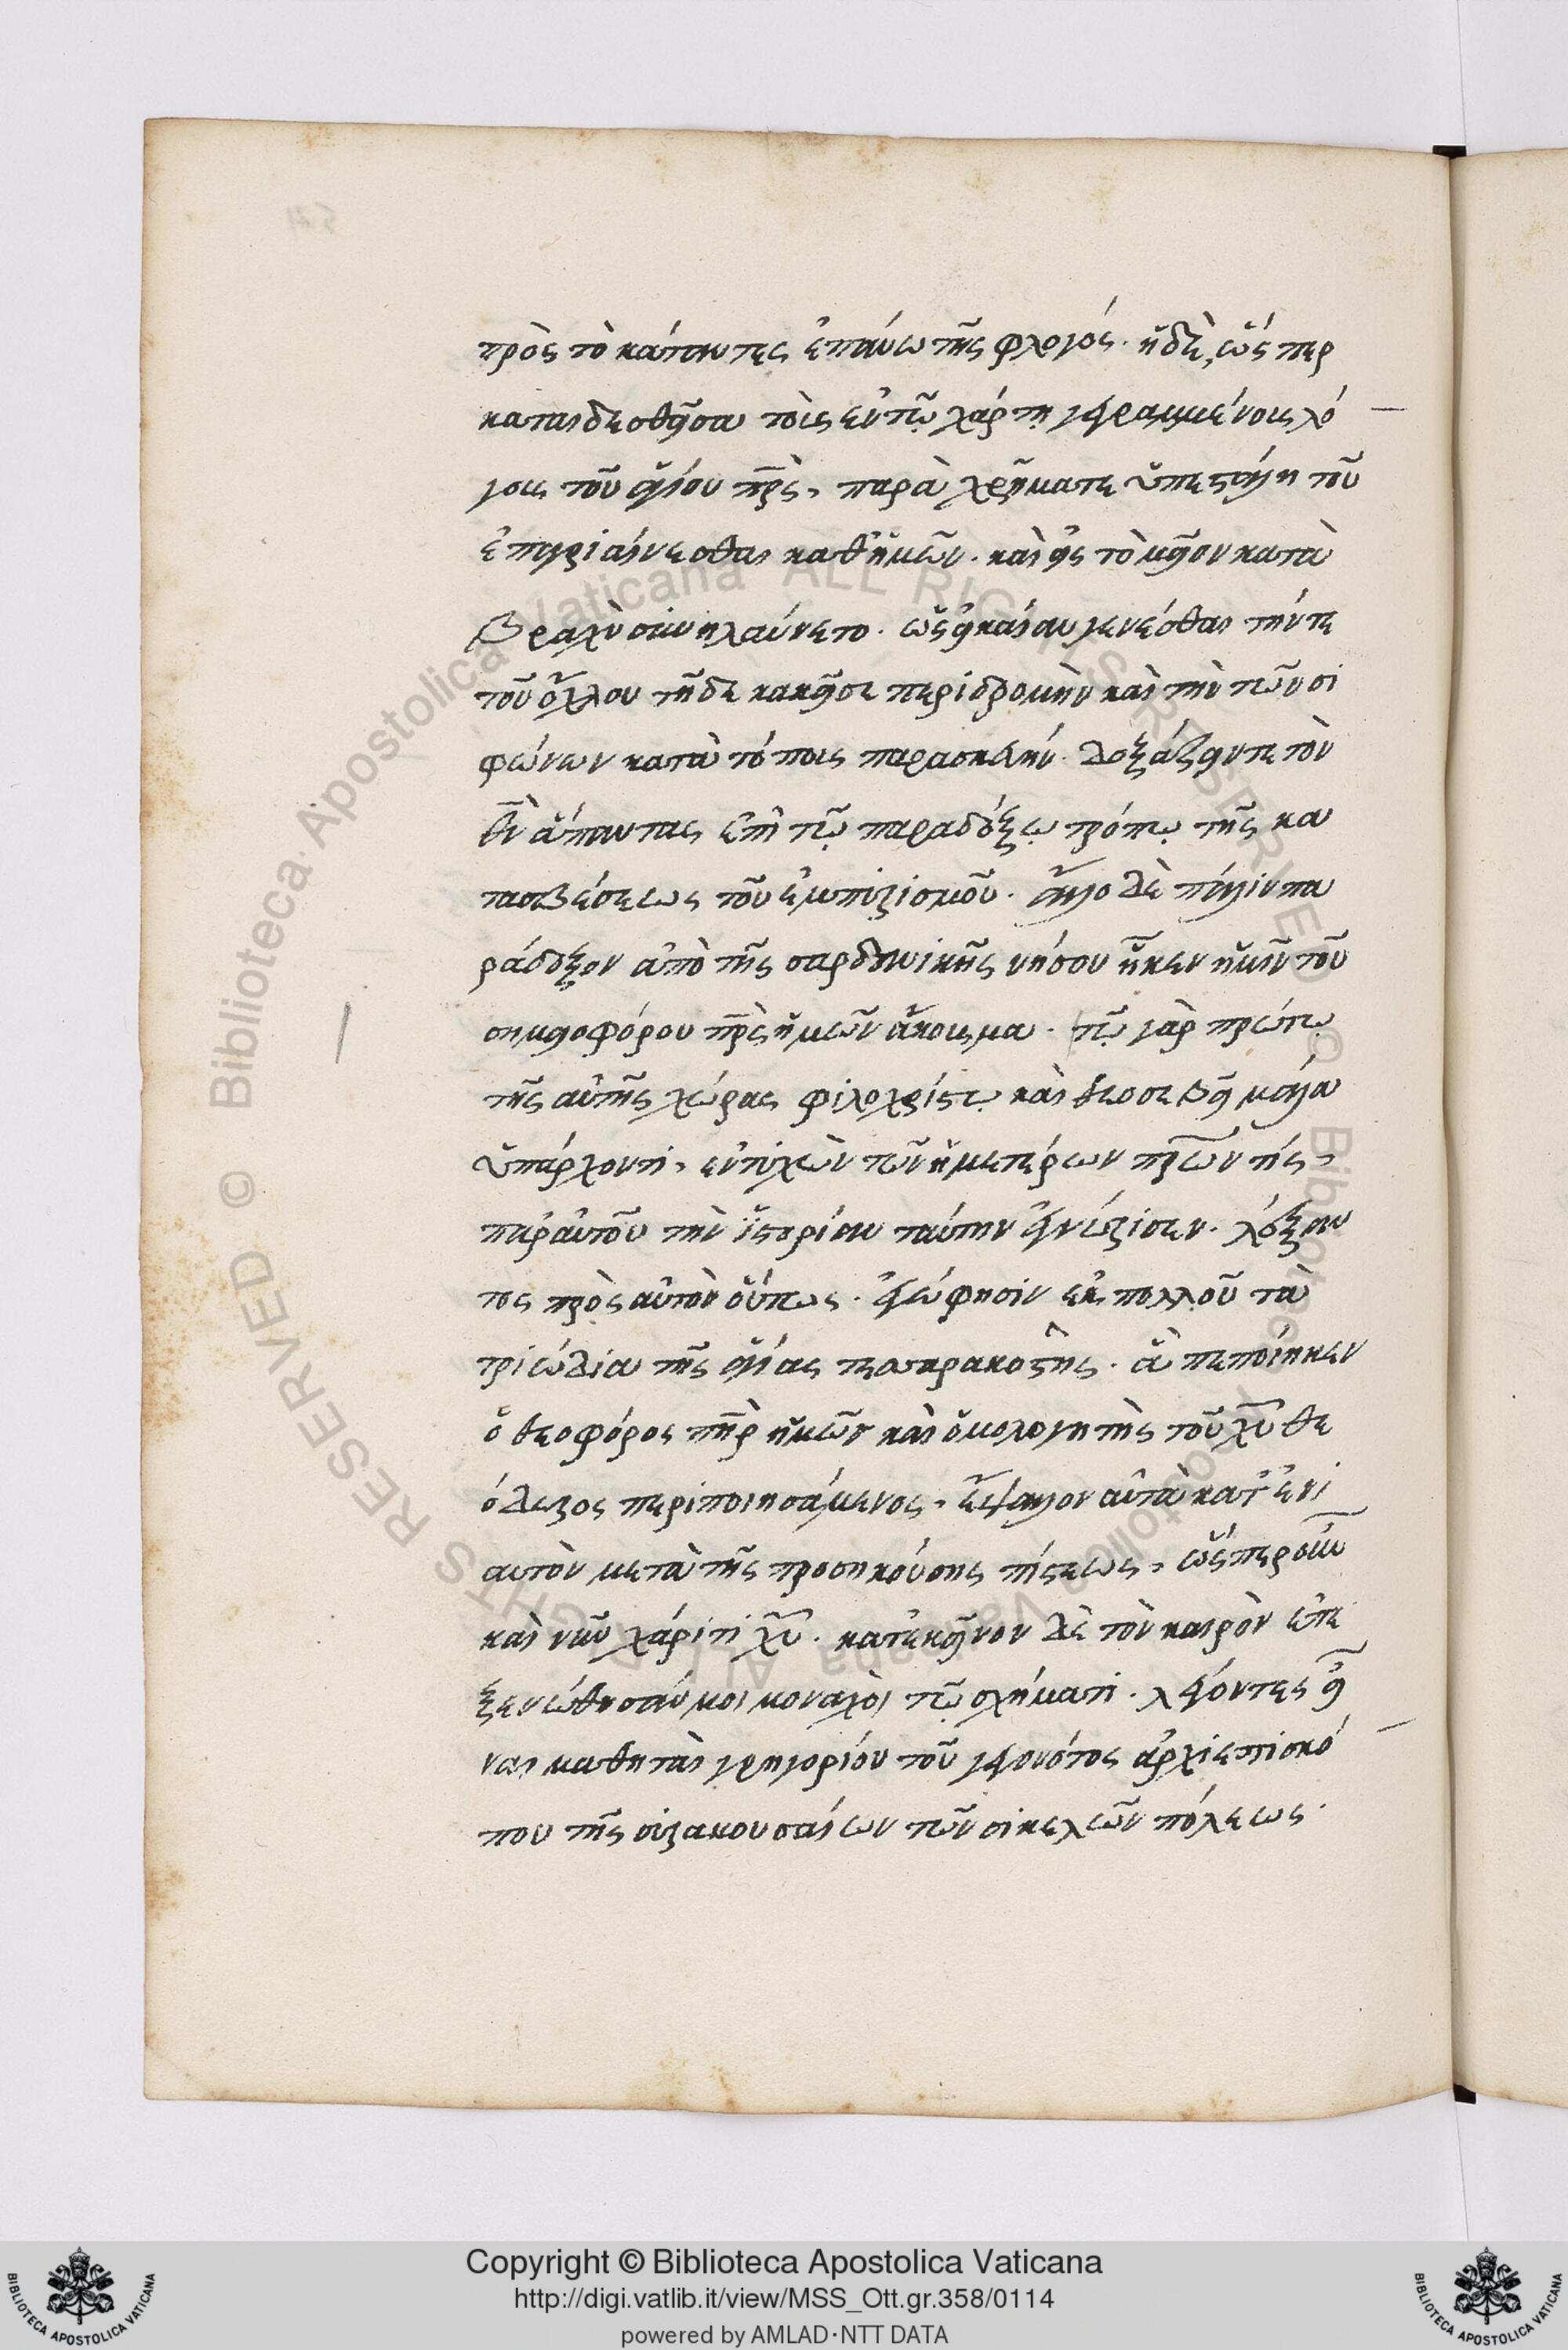 πρὸς τὸ κάταντες ἐπάνω τῆς φλογός. ἡ δὲ, ὥσπερ
καταιδεσθεῖσα τοῖς ἐν τῷ χάρτῃ γεγραμμένοις λό
γοις τοῦ ἁγίου πρ̅ς, παρὰ χρῆμα τε ὑπεστάλη τοῦ
ἐπαγριαίνεσθαι καθ' ἡμῶν. καὶ εἰς τὸ μεῖον κατὰ
βραχὺ συνηλαύνετο. ὡς εἰκαίαν γενέσθαι τήν τε
τοῦ ὄχλου τῆδε κακεῖσε περιδρομὴν καὶ τὴν τῶν σι
φώνων κατὰ τόπους παρασκευήν. δοξάζειν τε τὸν
θ̅ν ἅπαντας ἐπὶ τῷ παραδόξῳ τρόπῳ τῆς κα
τασβέσεως τοῦ ἐμπυρισμοῦ. ἄλλο δὲ πάλιν πα
ράδοξον ἀπὸ τῆς σαρδονικῆς νήσου ἧκεν ἡμῖν τοῦ
σημειοφόρου πρ̅ς ἡμῶν ἄκουσμα. τῷ γὰρ πρώτῳ
τῆς αὐτῆς χώρας φιλοχρίστῳ καὶ θεοσεβεῖ μάλα
ὑπάρχοντι, ἐντυχὼν τῶν ἡμετέρων πρ̅ων τίς,
παρ' αὐτοῦ τὴν ἱστορίαν ταύτην ἐγνώρισεν. λέξαν
τος πρὸς αὐτὸν οὕτως. ἐγώ φησιν ἐκ πολλοῦ τὰ
τριώδια τῆς ἁγίας τεσσαρακοστῆς. ἃ πεποίηκεν
ὁ θεοφόρος πη̅ρ ἡμῶν καὶ ὁμολογητὴς τοῦ χ̅υ θε
όδωρος περιποιησάμενος, ἔψαλλον αὐτὰ κατ' ἐνι
αυτὸν μετὰ τῆς προσηκούσης πίστεως, ὥσπερ οὖν
καὶ νῦν χάριτι χ̅υ. κατ' ἐκεῖνον δὲ τὸν καιρὸν ἐπε
ξενώθησάν μοι μοναχοὶ τῷ σχήματι. λέγοντες εἶ
ναι μαθηταὶ γρηγορίου τοῦ γεγονότος ἀρχιεπισκό
που τῆς συρακουσαίων τῶν σικελῶν πόλεως.
Copyright © Biblioteca Apostolica Vaticana
http://digi.vatlib.it/view/MSS_Ott.gr.358/0114
powered by AMLAD·NTT DATA